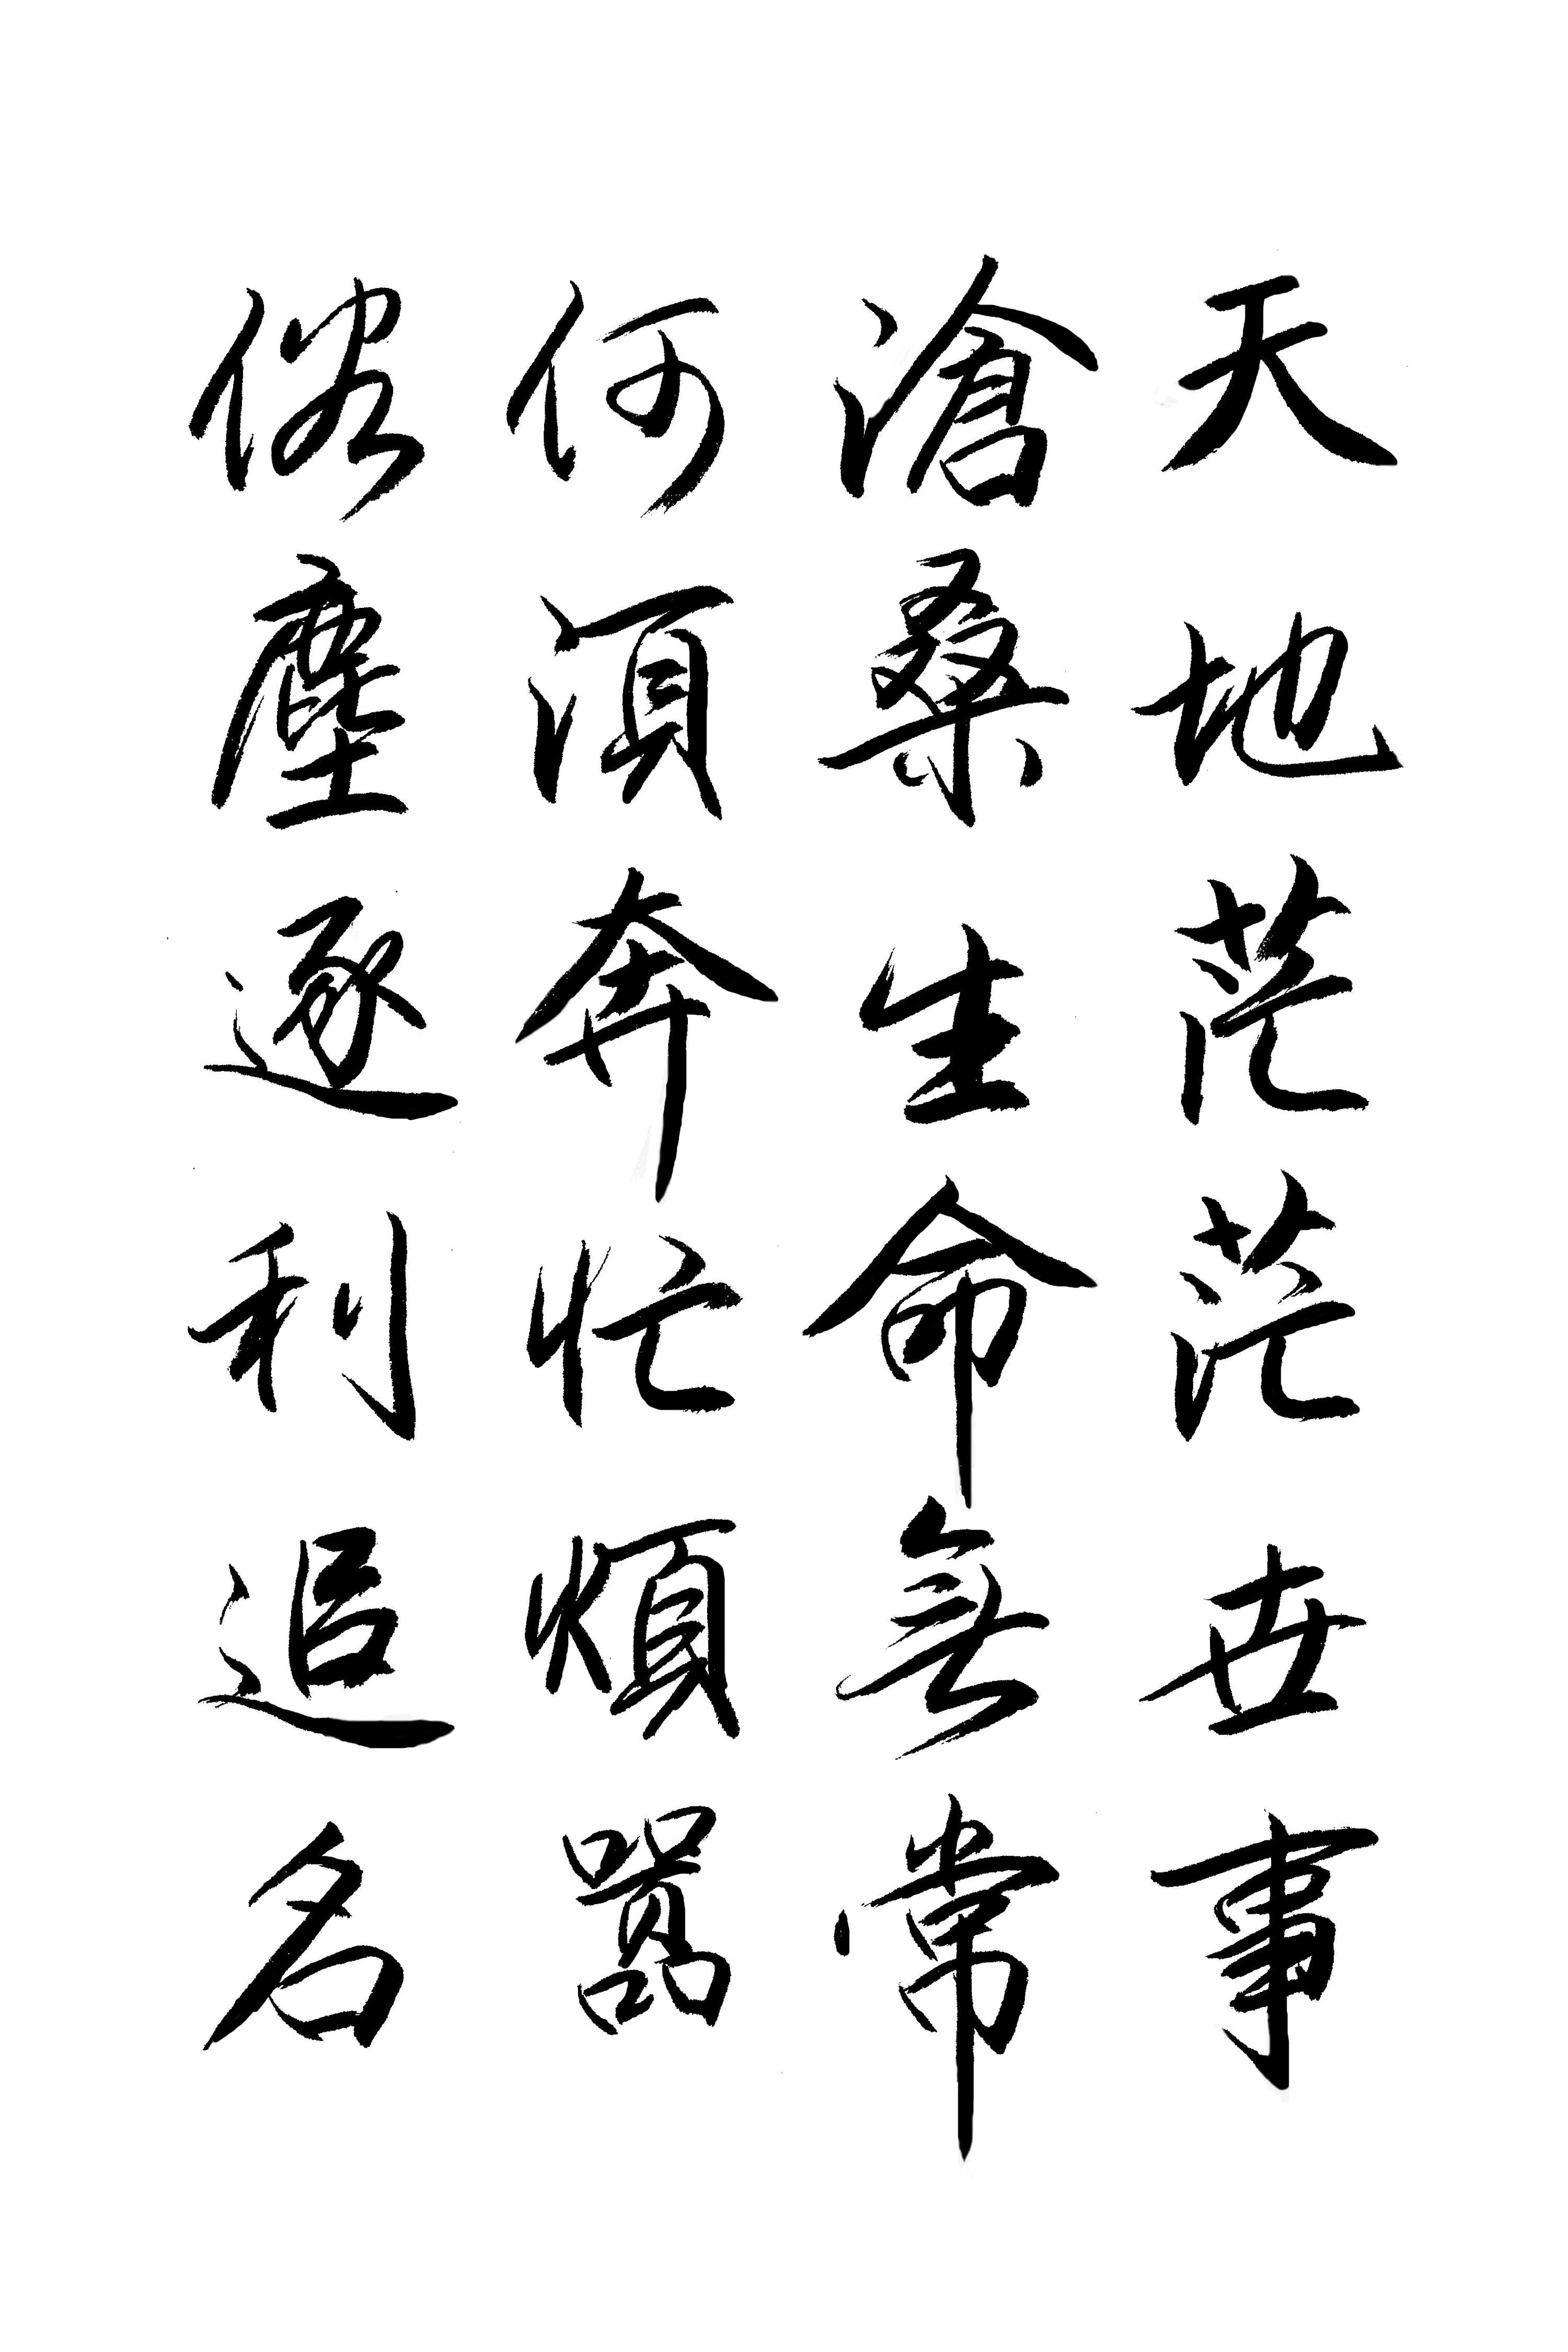 天地茫茫世事
滄桑生命無常
何須奔忙煩囂
俗塵逐利追名